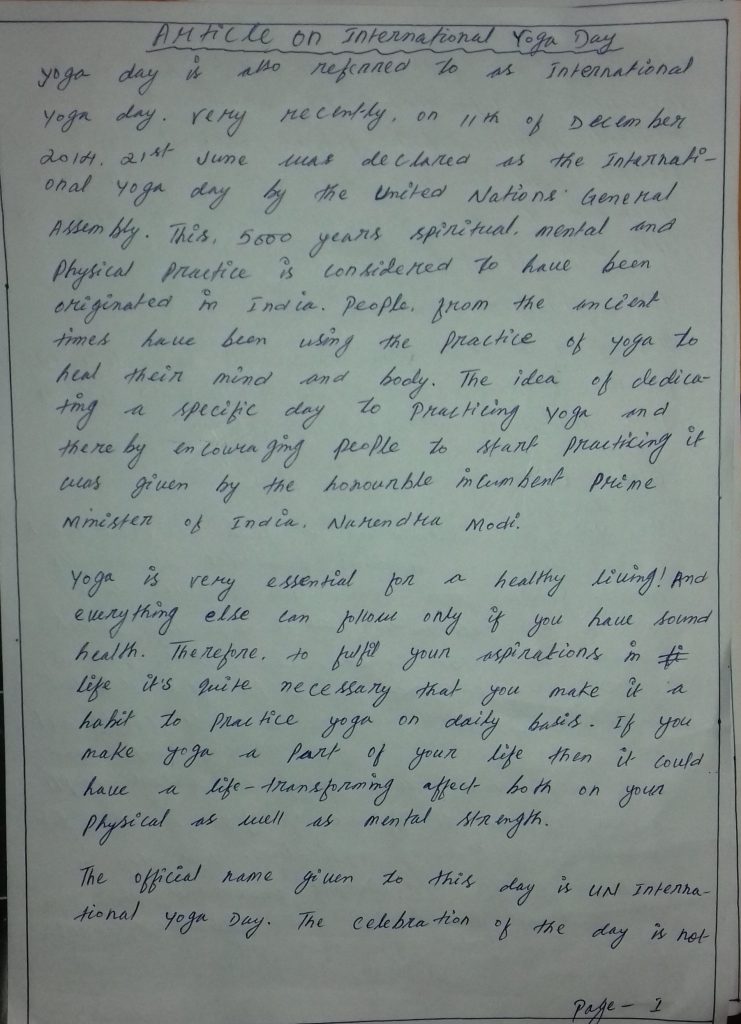 Article on International Yoga Day
Yoga day is also referred to as International
Yoga day. Very recently, on 11th of December
2014, 21st June was declared as the Internati-
onal Yoga day by the United Nations General
Assembly. This, 5000 years spiritual, mental and
Physical Practice is considered to have been
originated in India. People, from the ancient
times have been using the Practice of yoga to
heal their mind and body. The idea of dedica-
ting a specific day to Practicing Yoga and
thereby encouraging people to start practicing it
was given by the honourable incumbent Prime
Minister of India, Narendra Modi.
Yoga is very essential for a healthy living! And
everything else can follow only if you have sound
health. Therefore, to fulfil your aspirations in
life it's quite necessary that you make it a
habit to practice yoga on daily basis. If you
make yoga a Part of your life then it could
have a life-transforming affect both on your
Physical as well as mental strength.
The official name given to this day is UN Interna-
tional Yoga Day. The celebration of the day is not
Page - 1